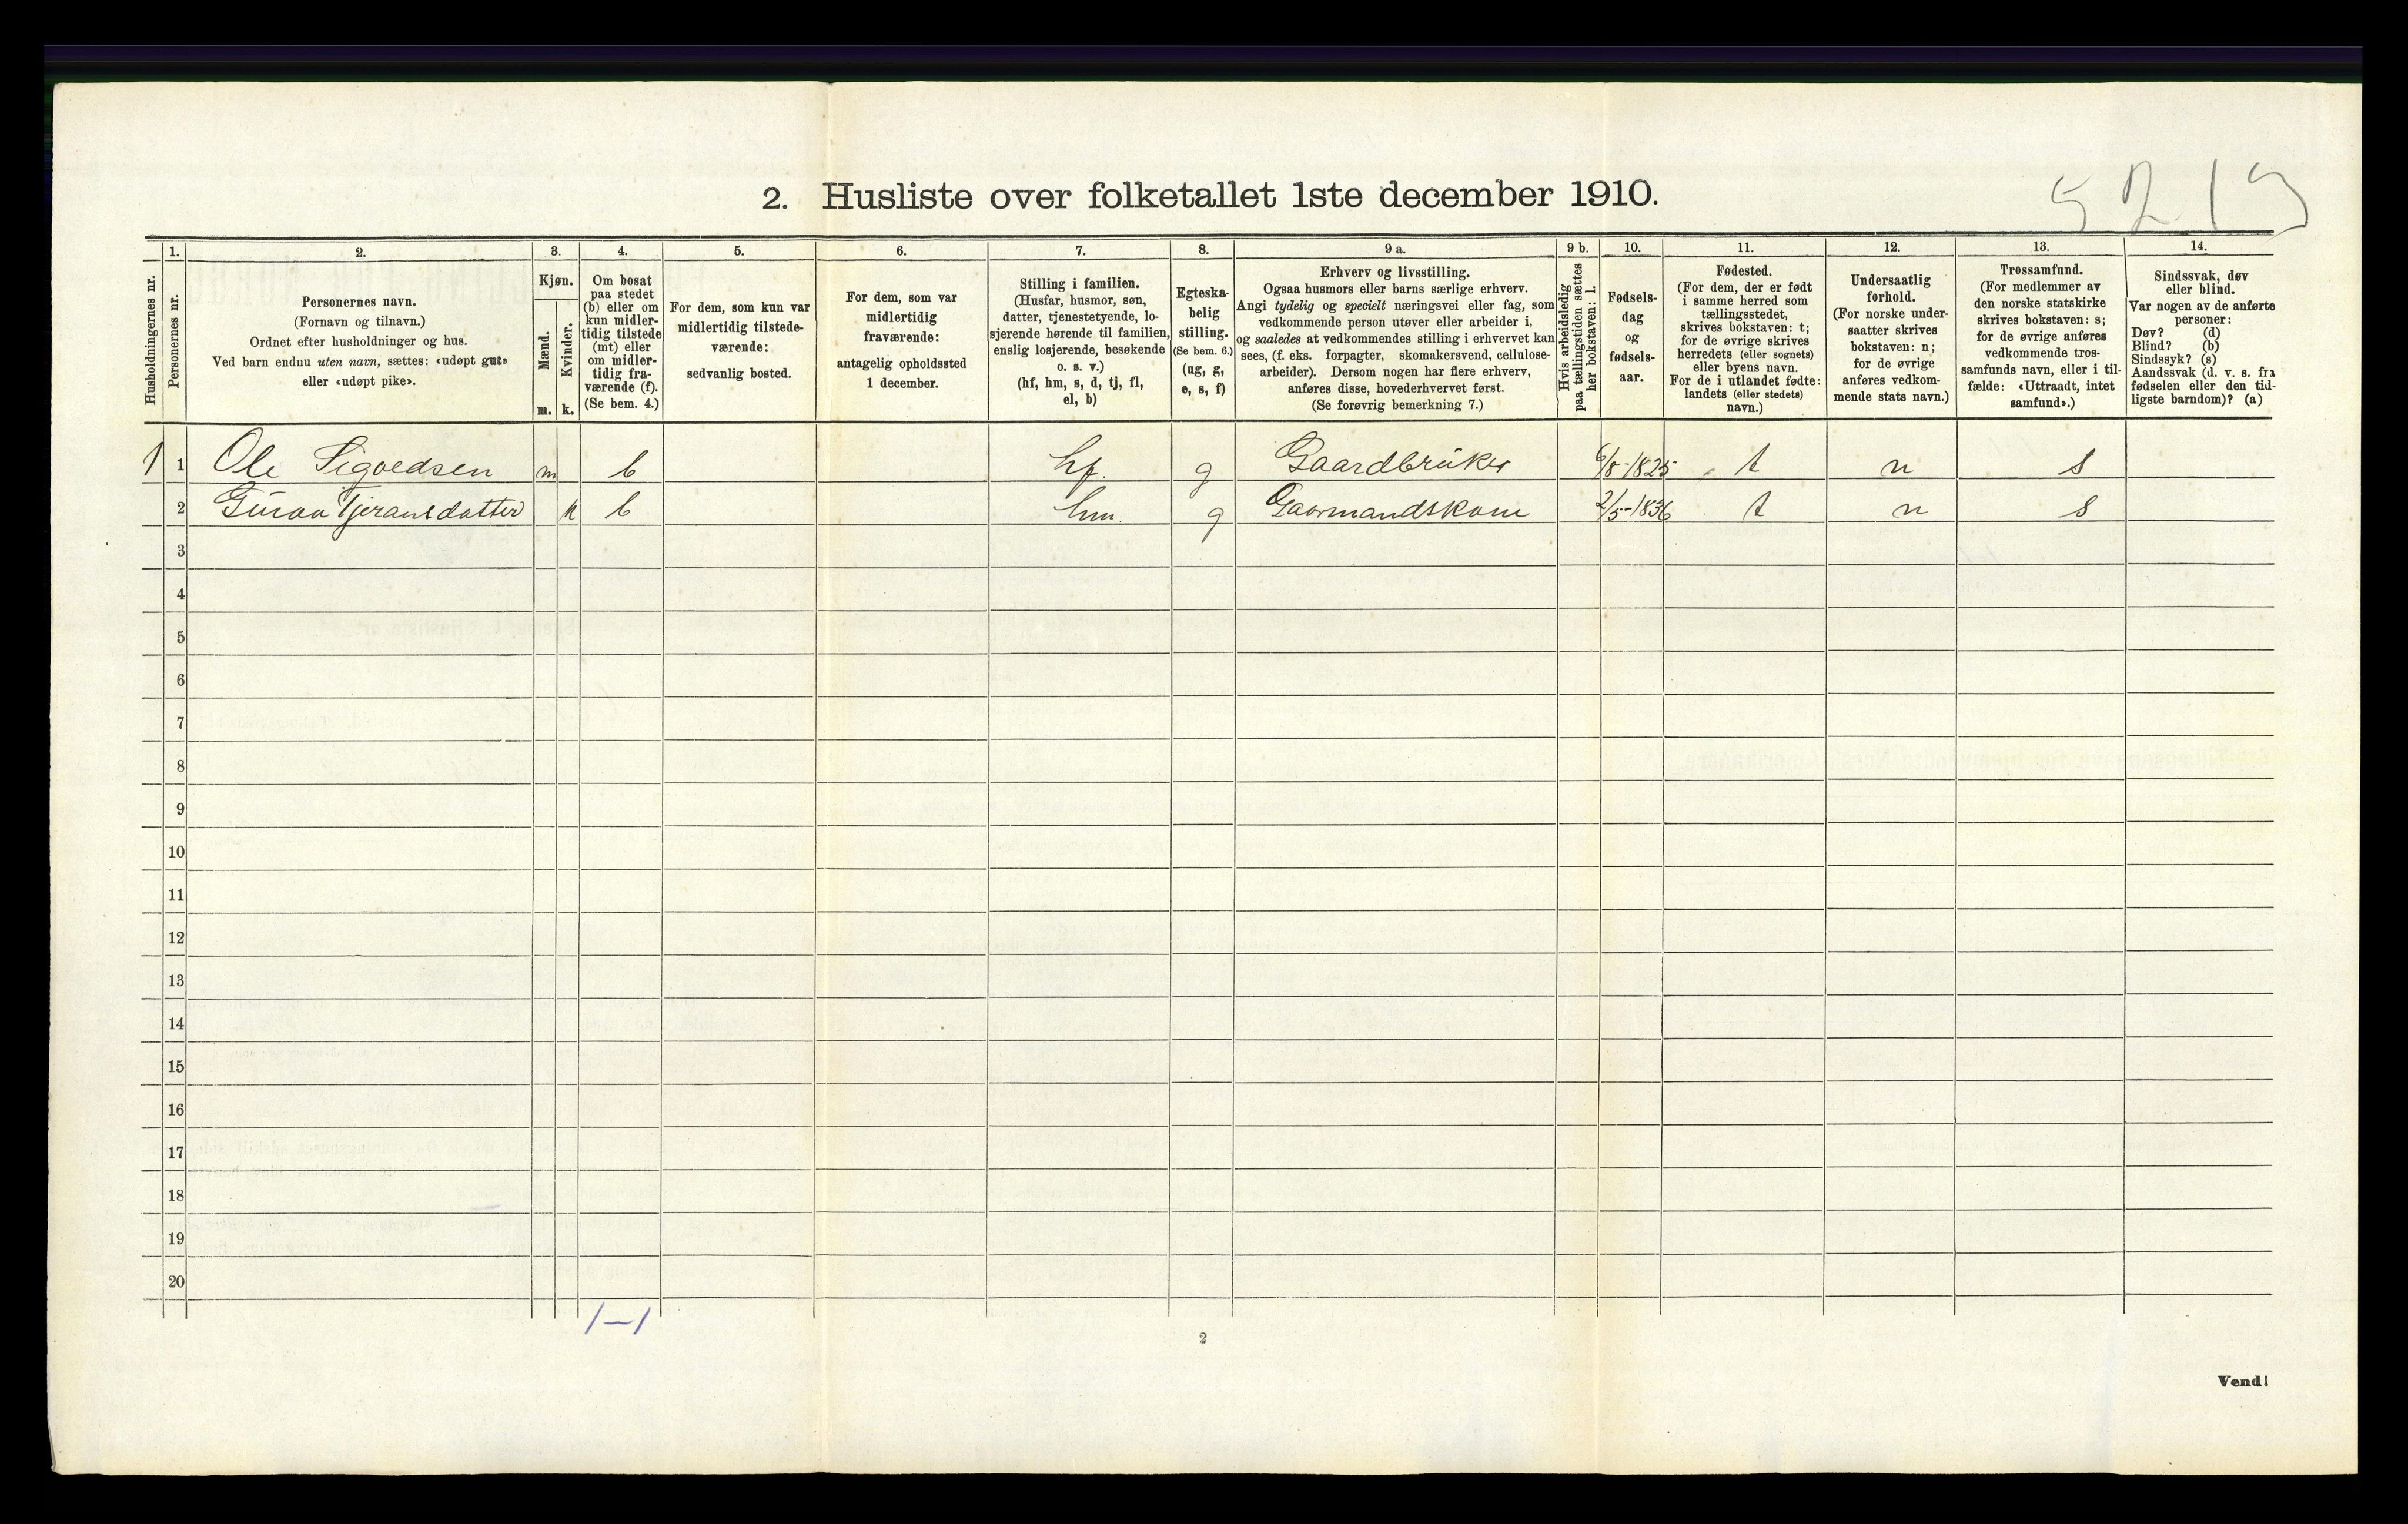 5213
2. Husliste over folketallet 1ste december 1910.
Husholdningernes nr.
1.
Personernes nr.
2.
Personernes navn.
(Fornavn og tilnavn.)
Ordnet efter husholdninger og hus.
Ved barn endnu uten navn, sættes: «udøpt gut»
eller «udøpt pike».
3.
Kjøn.
Mænd.
Kvinder.
m. k.
4.
Om bosat
paa stedet
(b) eller om
kun midler-
tidig tilstede
(mt) eller
om midler-
tidig fra-
værende (f).
(Se bem. 4.)
5.
For dem, som kun var
midlertidig tilstede-
værende:
sedvanlig bosted.
6.
For dem, som var
midlertidig
fraværende:
antagelig opholdssted
1 december.
7.
Stilling i familien.
(Husfar, husmor, søn,
datter, tjenestetyende, lo-
sjerende hørende til familien,
enslig losjerende, besøkende
o. s. v.)
(hf, hm, s, d, tj, fl,
el, b)
8.
Egteska-
belig
stilling.
(Se bem. 6.)
(ug, g,
e, s, f)
9 a.
Erhverv og livsstilling.
Ogsaa husmors eller barns særlige erhverv.
Angi tydelig og specielt næringsvei eller fag, som
vedkommende person utøver eller arbeider i,
og saaledes at vedkommendes stilling i erhvervet kan
sees, (f. eks. forpagter, skomakersvend, cellulose-
arbeider). Dersom nogen har flere erhverv,
anføres disse, hovederhvervet først.
(Se forøvrig bemerkning 7.)
9 b.
Hvis arbeidsledig
paa tællingstiden sættes
her bokstaven: l.
10.
Fødsels-
dag
og
fødsels-
aar.
11.
Fødested.
(For dem, der er født
i samme herred som
tællingsstedet,
skrives bokstaven: t;
for de øvrige skrives
herredets (eller sognets)
eller byens navn.
For de i utlandet fødte:
landets (eller stedets)
navn.)
12.
Undersaatlig
forhold.
(For norske under-
saatter skrives
bokstaven: n;
for de øvrige
anføres vedkom-
mende stats navn.)
13.
Trossamfund.
(For medlemmer av
den norske statskirke
skrives bokstaven: s;
for de øvrige anføres
vedkommende tros-
samfunds navn, eller i til-
fælde: «Uttraadt, intet
samfund».)
14.
Sindssvak, døv
eller blind.
Var nogen av de anførte
personer:
Døv? (d)
Blind? (b)
Sindssyk? (s)
Aandssvak (d. v. s. fra
fødselen eller den tid-
ligste barndom)? (a)
1 1 Ole Sigvedsen m b hf. g Gaardbruker 6/8-1825 t n s
2 Guroa Tjeransdatter k b hm. g Gaarmandskone 2/5-1836 t n s
3
4
5
6
7
8
9
10
11
12
13
14
15
16
17
18
19
20
1-1
2
Vend!